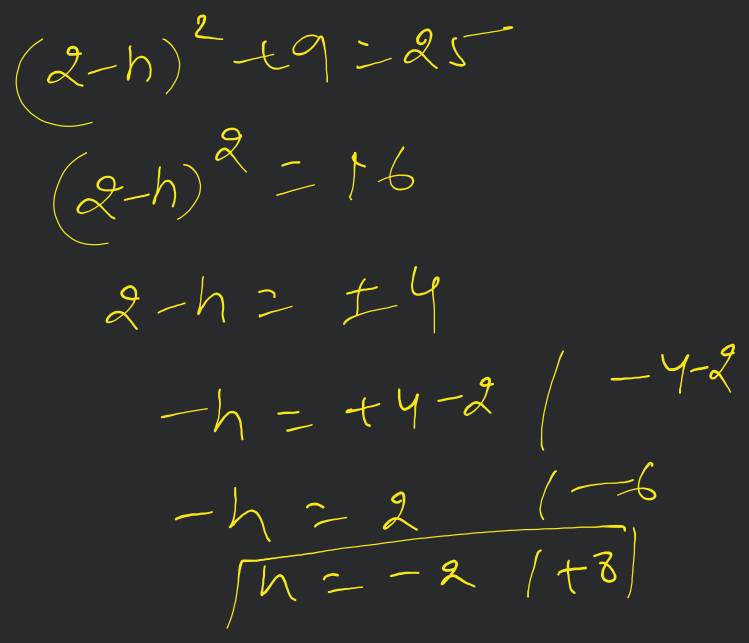 (2-h)² + 9 = 25
(2-h)² = 16
2 - h = ± 4
-h = +4 - 2 / -4-2
-h = 2 / -6
h = -2 / +8